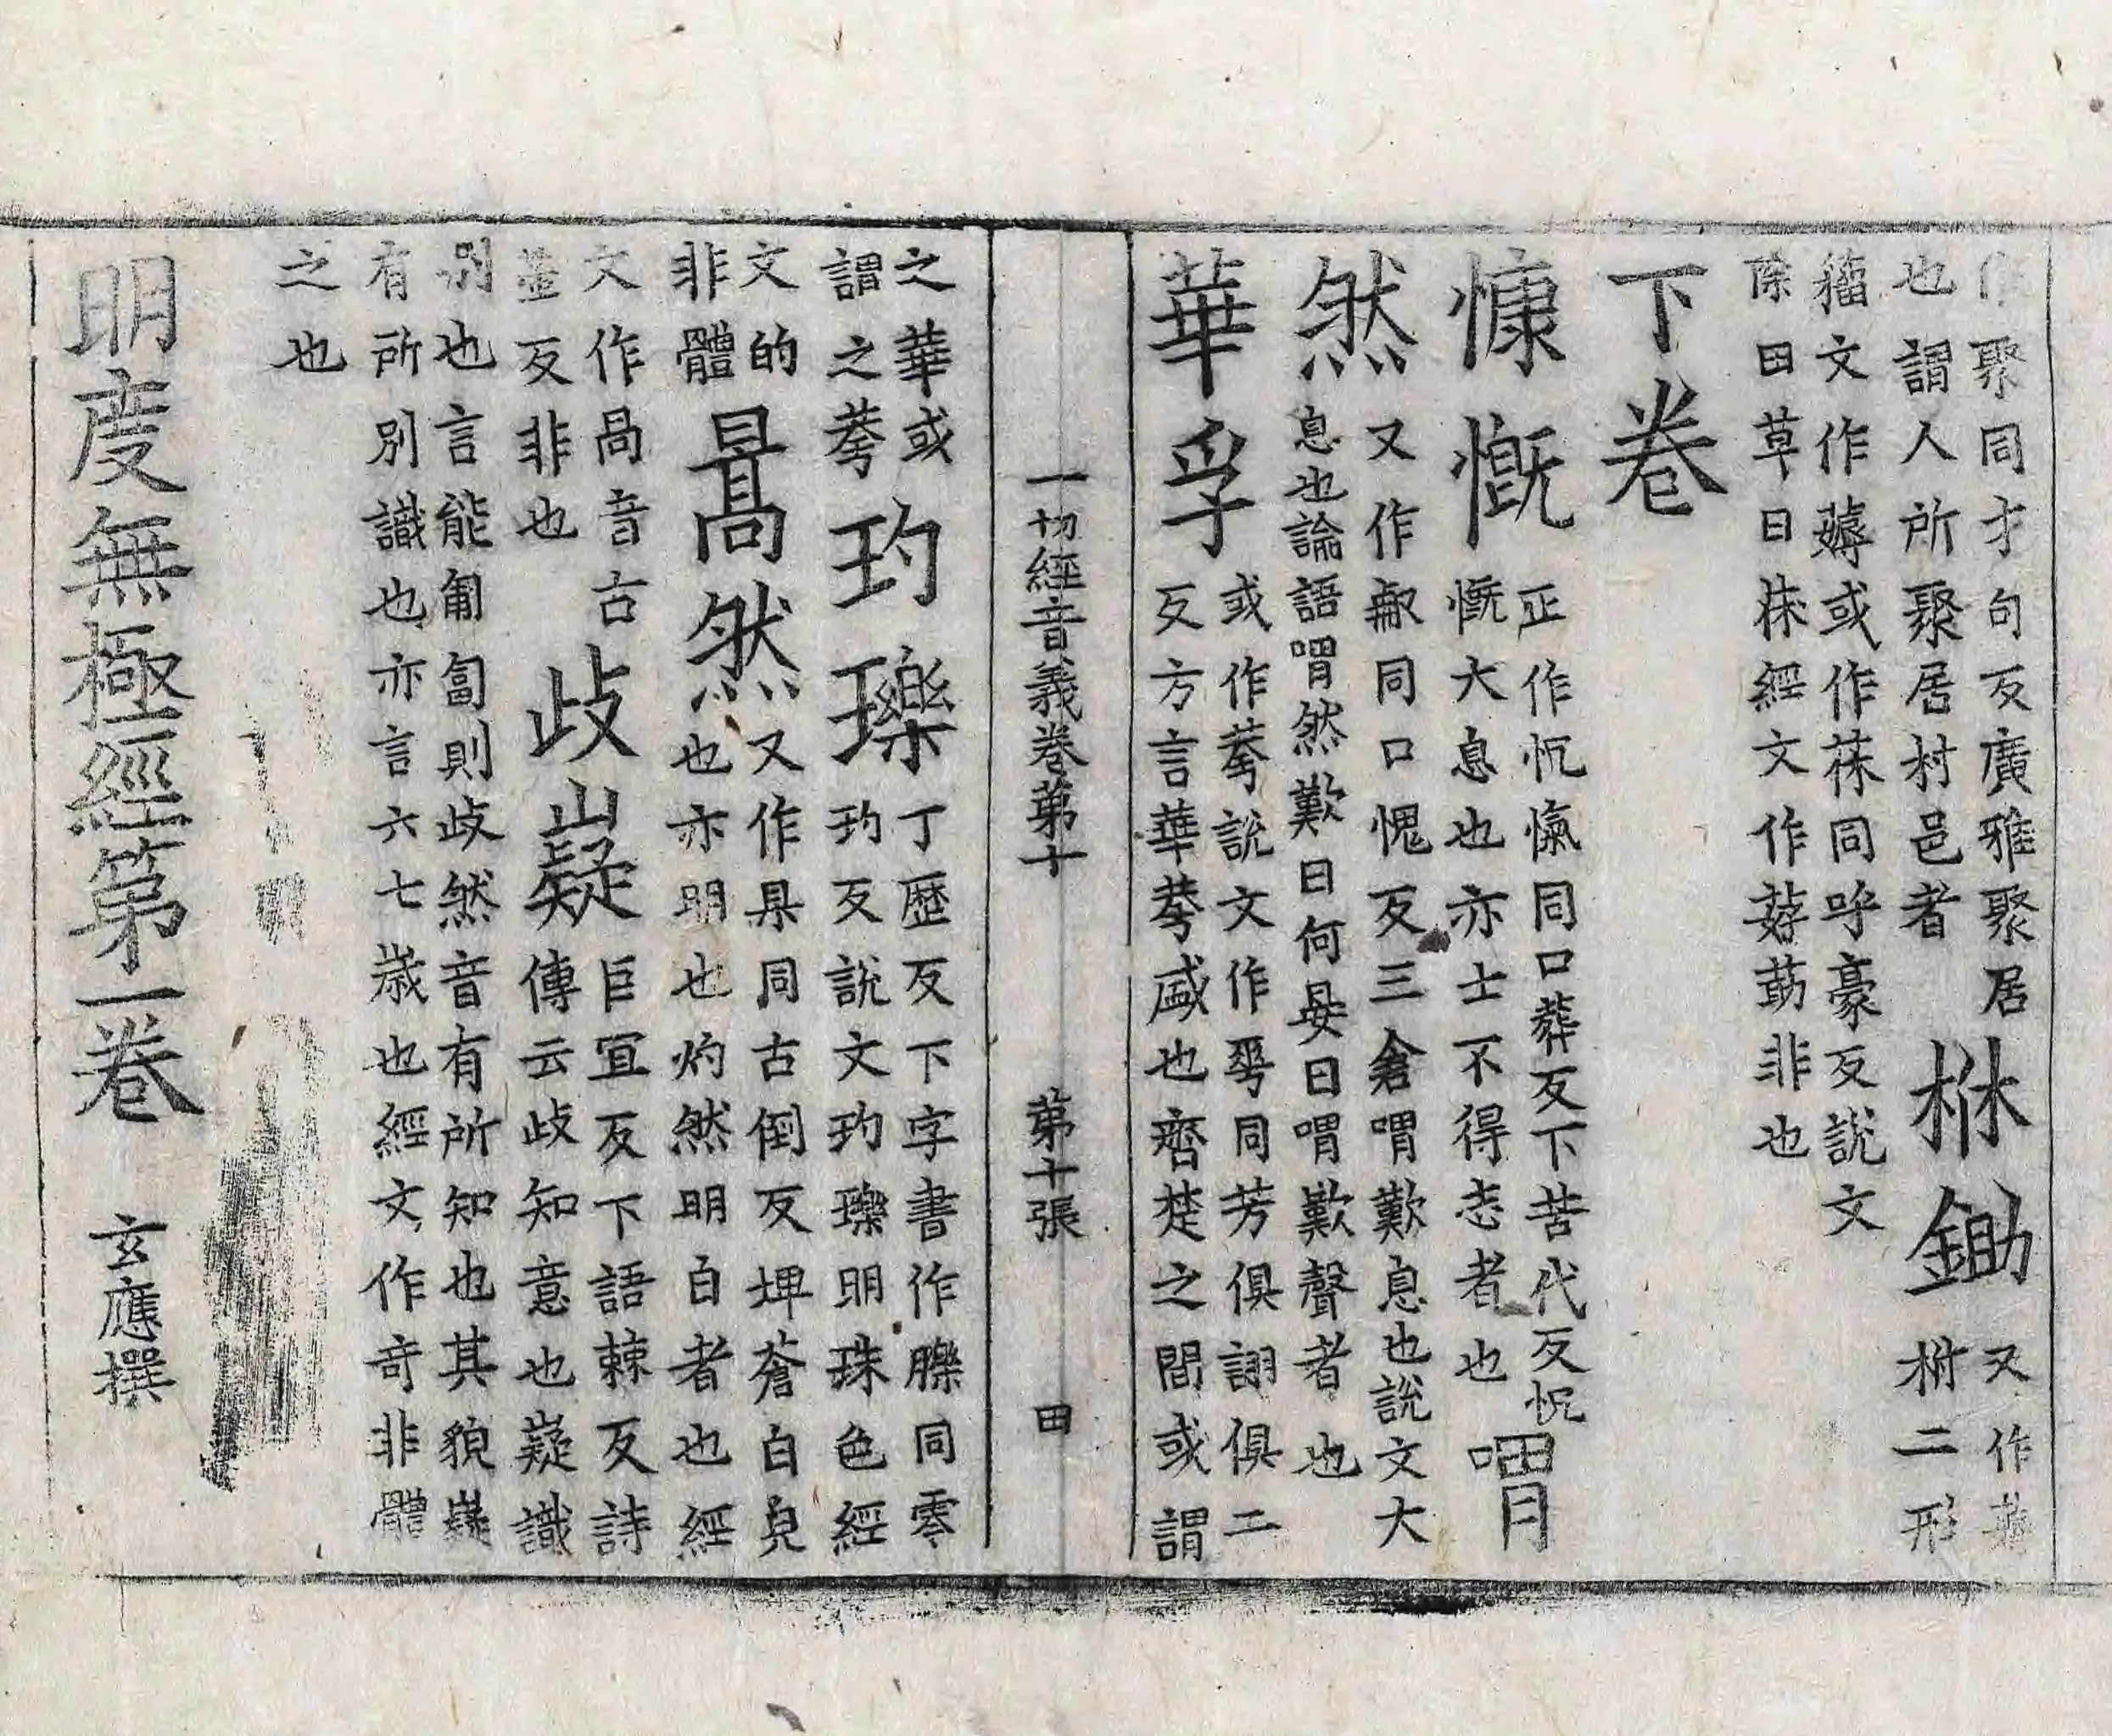 聚同才句反廣雅聚居
也謂人所聚居村邑者
茠鋤
又作
樹二形
籀文作薅或作茠同呼豪反說文
除田草曰茠經文作䓤莇非也
下卷
慷慨
正作忼愾同口葬反下苦代反忼
慨大息也亦士不得志者也
喟然
又作嘳同口愧反三倉喟歎息也說文大
息也論語喟然歎曰何晏曰喟歎聲者也
華孚
或作荂說文作𠌶同芳俱詡俱二
反方言華荂盛也齊楚之間或謂
一切經音義卷第十
第十張
田
之華或
謂之荂
玓瓅
丁歷反下字書作皪同零
玓反說文玓玓瓅明珠色經
文的
非體
暠然
又作杲同古倒反埤蒼白皃
也亦明也灼然明白者也經
文作咼音古
反非也
歧嶷
巨宜反下語棘反詩
傳云歧知意也嶷識
別也言能匍匐則歧然音有所知也其貌嶷
有所別識也亦言六七歲也經文作奇非體
之也
明度無極經第一卷
玄應撰